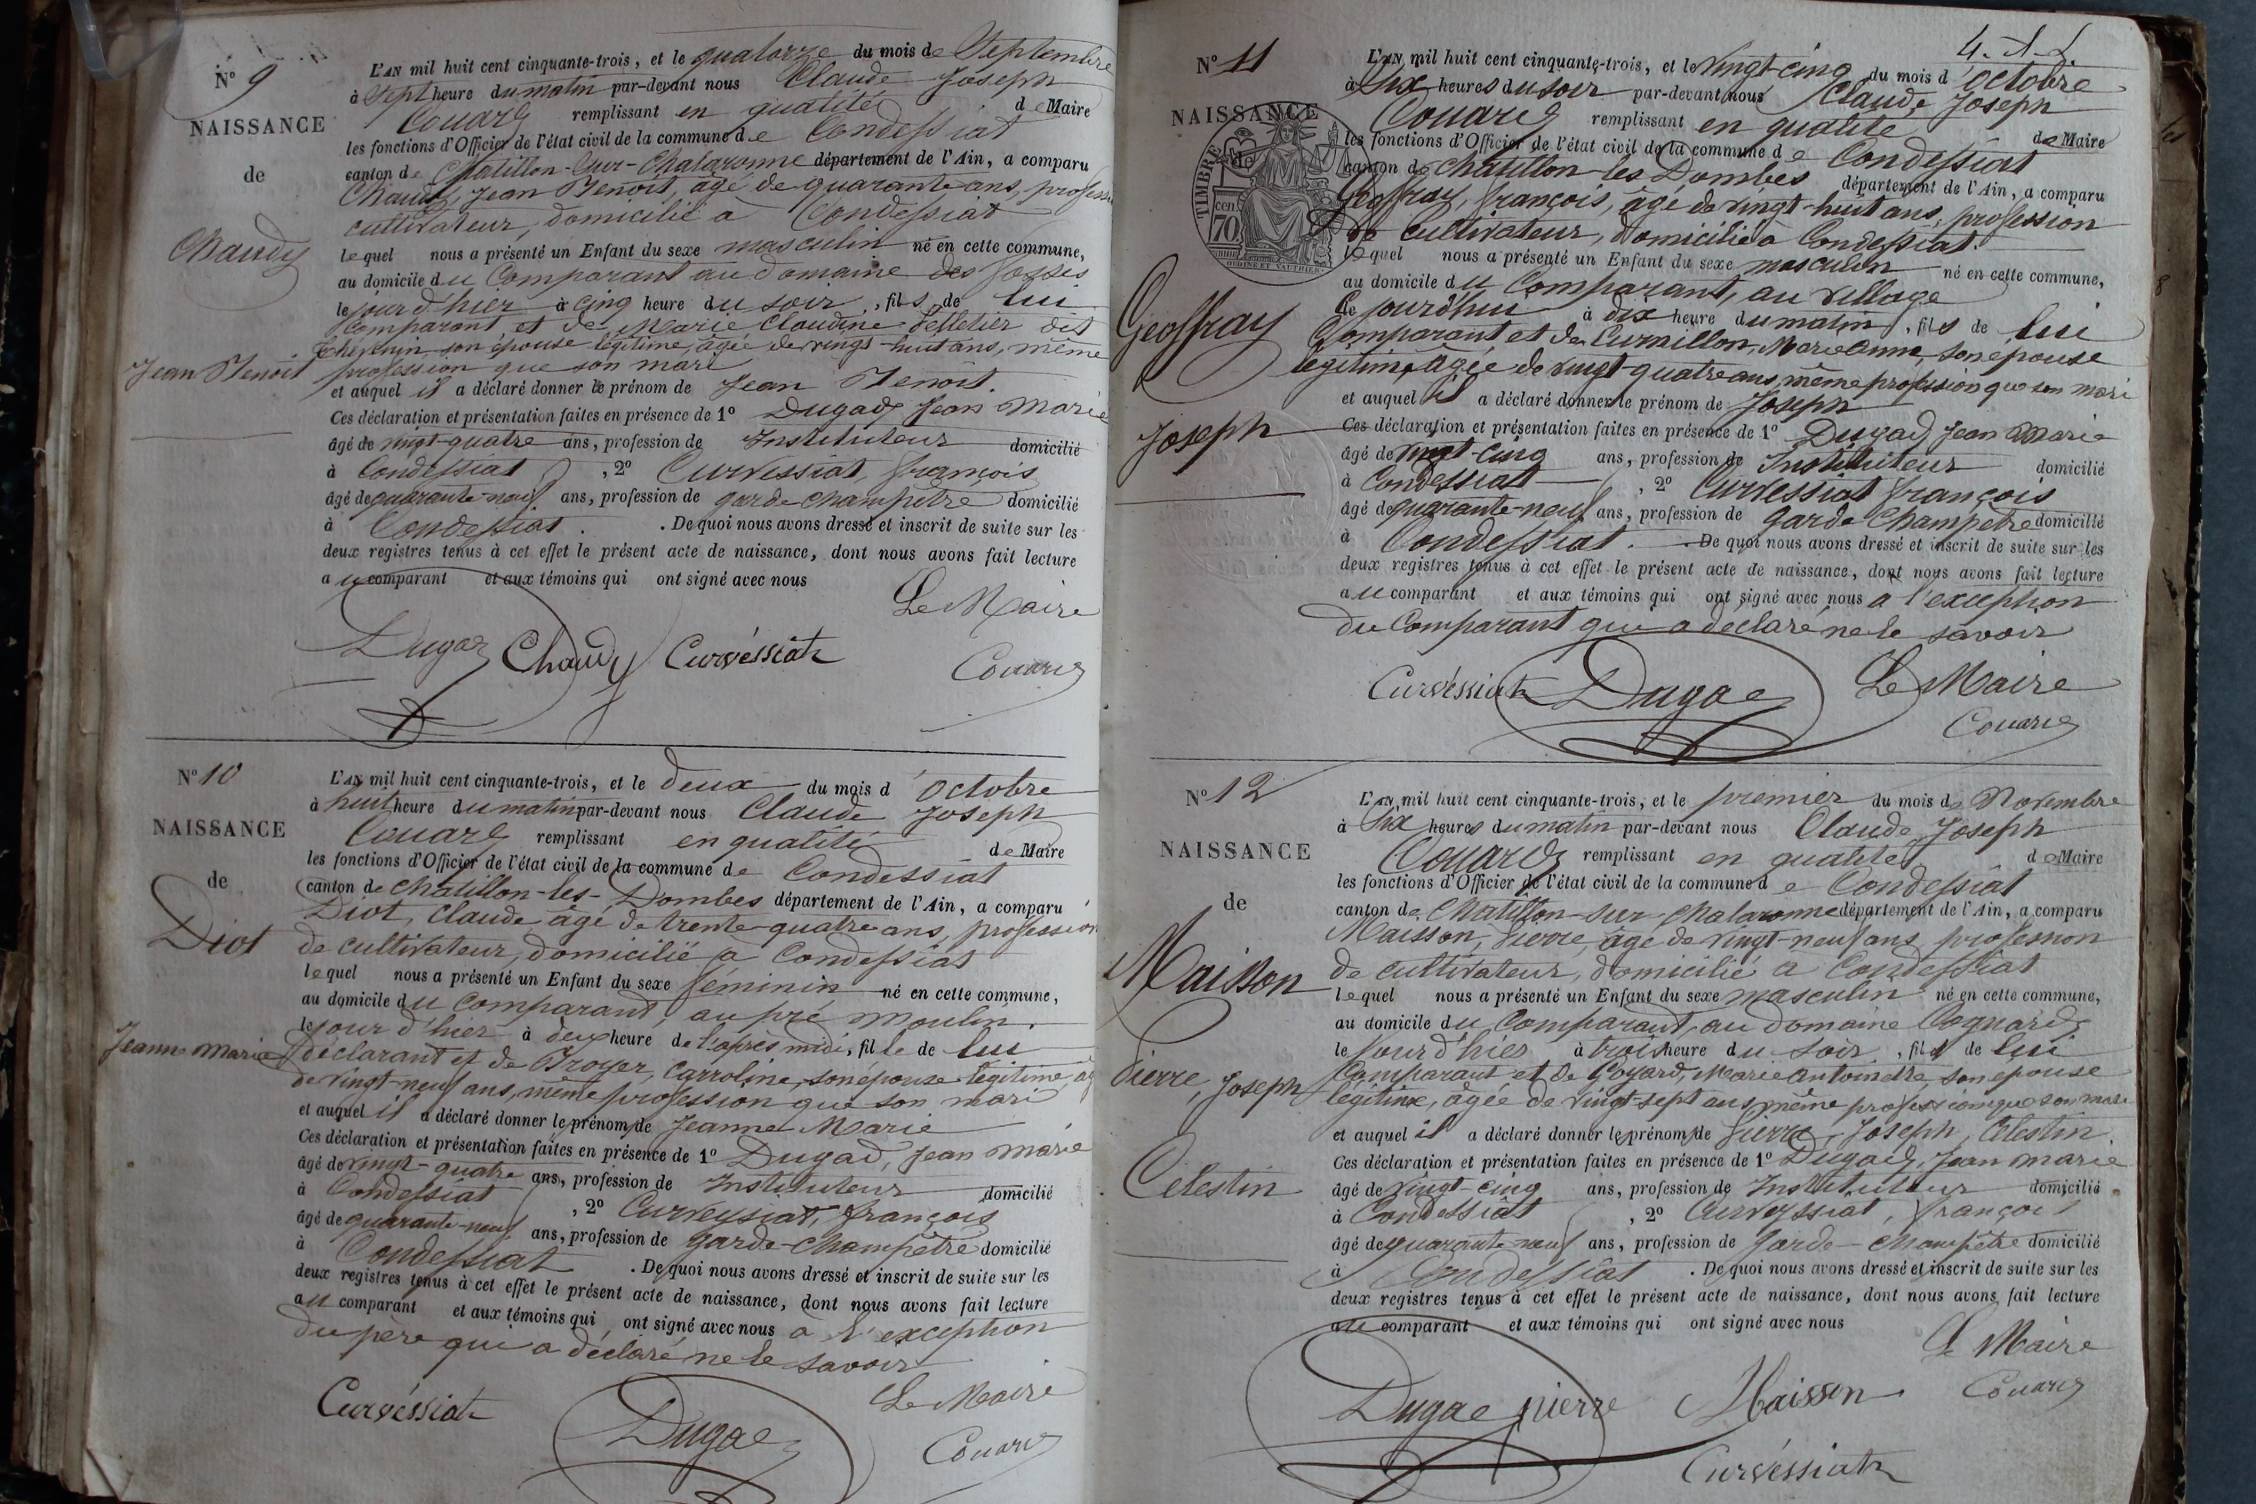 N° 9
NAISSANCE
de
Chaudy
Jean Benoit
L'AN mil huit cent cinquante-trois, et le quatorze du mois de Septembre
à Sept heure du matin par-devant nous Claude Joseph
Couard remplissant en qualité de Maire
les fonctions d'Officier de l'état civil de la commune de Condessiat
canton de Chatillon-sur-Chalaronne département de l'Ain, a comparu
Chaudy, Jean Benoit, âgé de quarante ans, profession
cultivateur, domicilié à Condessiat
lequel nous a présenté un Enfant du sexe masculin né en cette commune,
au domicile du Comparant au domaine des fosses
le jour d'hier à cinq heure du soir, fils de lui
Comparant et de Marie Claudine Pelletier dit
Thévenin son épouse légitime, âgée de vingt-huit ans, même
profession que son mari
et auquel il a déclaré donner le prénom de Jean Benoit.
Ces déclaration et présentation faites en présence de 1° Dugad Jean Marie
âgé de vingt-quatre ans, profession de Instituteur domicilié
à Condessiat, 2° Curvessiat, françois
âgé de quarante-neuf ans, profession de garde champêtre domicilié
à Condessiat. De quoi nous avons dressé et inscrit de suite sur les
deux registres tenus à cet effet le présent acte de naissance, dont nous avons fait lecture
au comparant et aux témoins qui ont signé avec nous
Le Maire
Dugad Chaudy Curvéssiat Couard
N° 10
NAISSANCE
de
Diot
Jeanne Marie
L'AN mil huit cent cinquante-trois, et le deux du mois d'octobre
à huit heure du matin par-devant nous Claude Joseph
Couard remplissant en qualité de Maire
les fonctions d'Officier de l'état civil de la commune de Condessiat
canton de chatillon-les-Dombes département de l'Ain, a comparu
Diot, Claude âgé de trente-quatre ans, profession
de cultivateur, domicilié à Condessiat
lequel nous a présenté un Enfant du sexe féminin né en cette commune,
au domicile du Comparant, au pré moulin.
le jour d'hier à deux heure de l'après midi, fille de lui
déclarant et de Broyer, Carroline, son épouse légitime, âg
de vingt-neuf ans, même profession que son mari
et auquel il a déclaré donner le prénom de Jeanne Marie
Ces déclaration et présentation faites en présence de 1° Dugad, Jean marie
âgé de vingt-quatre ans, profession de Instituteur domicilié
à Condessiat, 2° Curveyssiat, françois
âgé de quarante-neuf ans, profession de garde-champêtre domicilié
à Condessiat. De quoi nous avons dressé et inscrit de suite sur les
deux registres tenus à cet effet le présent acte de naissance, dont nous avons fait lecture
au comparant et aux témoins qui ont signé avec nous à l'exception
du père qui a déclaré ne le savoir
Le Maire
Curvéssiat Dugad Couard
4. A. L.
N° 11
NAISSANCE
de
TIMBRE
70 cen
OUDINE ET VAUTHIER
Geoffray
Joseph
L'AN mil huit cent cinquante-trois, et le vingt-cinq du mois d'octobre
à Six heures du soir par-devant nous Claude, Joseph
Couard remplissant en qualité de Maire
les fonctions d'Officier de l'état civil de la commune de Condessiat
canton de chatillon-les Dombes département de l'Ain, a comparu
Geoffray, françois, âgé de vingt-huit ans, profession
de cultivateur, domicilié à Condessiat.
lequel nous a présenté un Enfant du sexe masculin né en cette commune,
au domicile du Comparant, au village
le jourd'hui à dix heure du matin, fils de lui
Comparant et de Curnillon, Marie Anne, son épouse
légitime âgée de vingt-quatre ans, même profession que son mari
et auquel il a déclaré donner le prénom de Joseph
Ces déclaration et présentation faites en présence de 1° Dugad Jean Marie
âgé de vingt-cinq ans, profession de Instituteur domicilié
à Condessiat, 2° Curvessiat françois
âgé de quarante-neuf ans, profession de garde Champêtre domicilié
à Condessiat. De quoi nous avons dressé et inscrit de suite sur les
deux registres tenus à cet effet le présent acte de naissance, dont nous avons fait lecture
au comparant et aux témoins qui ont signé avec nous a l'exception
du Comparant qui a déclaré ne le savoir
Curvéssiat Dugad Le Maire
Couard
N° 12
NAISSANCE
de
Maisson
Pierre, Joseph
Celestin
L'AN mil huit cent cinquante-trois, et le premier du mois de Novembre
à Six heures du matin par-devant nous Claude, Joseph
Couard remplissant en qualité de Maire
les fonctions d'Officier de l'état civil de la commune de Condessiat
canton de Chatillon-sur-Chalaronne département de l'Ain, a comparu
Maisson, Pierre, âgé de vingt-neuf ans profession
de cultivateur, domicilié à Condessiat
lequel nous a présenté un Enfant du sexe masculin né en cette commune,
au domicile du Comparant, au domaine Cognard
le jour d'hier à trois heure du soir, fils de lui
Comparant et de Goyard, Marie Antoinette, son épouse
légitime, âgée de vingt-sept ans, même profession que son mari
et auquel il a déclaré donner le prénom de Pierre, Joseph, Celestin.
Ces déclaration et présentation faites en présence de 1° Dugad, Jean marie
âgé de vingt-cinq ans, profession de Instituteur domicilié
à Condessiat, 2° Curveyssiat, françois
âgé de quarante-neuf ans, profession de Garde-Champêtre domicilié
à Condessiat. De quoi nous avons dressé et inscrit de suite sur les
deux registres tenus à cet effet le présent acte de naissance, dont nous avons fait lecture
au comparant et aux témoins qui ont signé avec nous
Le Maire
Dugad pierre Maisson Couard
Curvéssiat